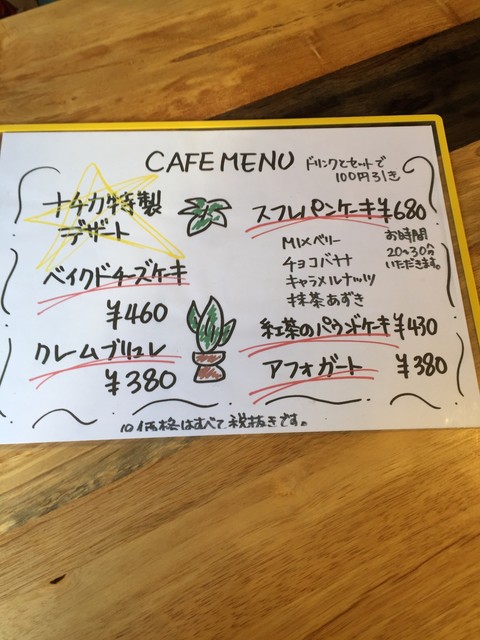 CAFE MENU
ドリンクとセットで
100円引き
ナチカ特製
デザート
ベイクドチーズケーキ
¥460
クレームブリュレ
¥380
スフレパンケーキ ¥680
MIXベリー
チョコバナナ
キャラメルナッツ
抹茶あずき
お時間
20~30分
いただきます。
紅茶のパウンドケーキ ¥430
アフォガート ¥380
価格はすべて税抜きです。